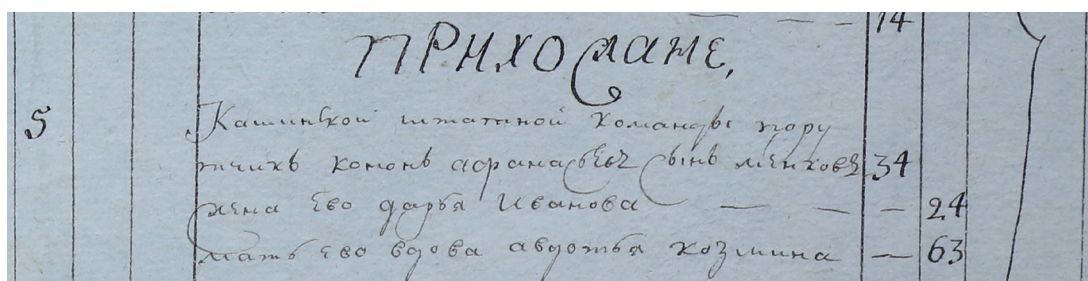 — — — 14
ПРИХОЖАНЕ,
5 Кашинской штатной команды пору
тчикъ кононъ афанасьевъ сынъ менковъ 34
жена Ево дарья Иванова — — — 24
мать Ево вдова авдотья козмина — 63